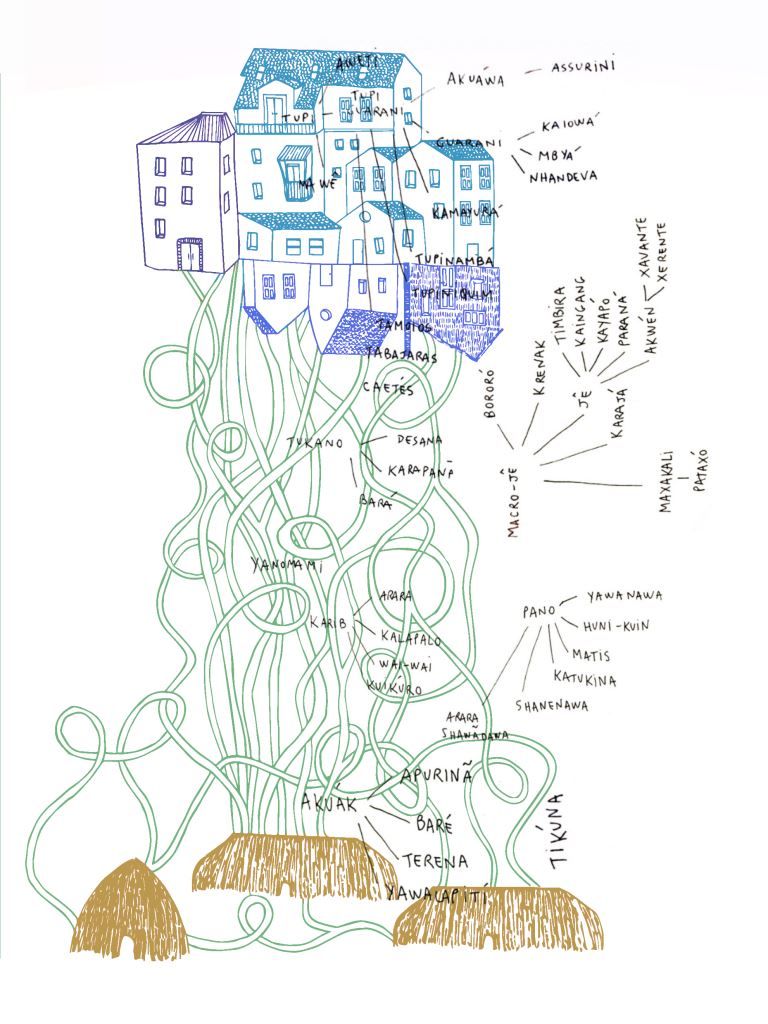 AWETÍ
AKUÁWA
ASSURINI
TUPI
TUPI
GUARANI
GUARANI
KAIOWÁ
MBYÁ
NHANDEVA
MAWÉ
KAMAYURÁ
TUPINAMBÁ
TUPINIQUIM
TAMOIOS
TABAJARAS
CAETÉS
XAVANTE
XERENTE
TIMBIRA
KAINGANG
KAYAPÓ
PARANÁ
AKWÉN
KRENAK
BORORÓ
JÊ
KARAJÁ
MACRO-JÊ
MAXAKALI
PATAXÓ
TUKANO
DESANA
KARAPANÃ
BARÁ
YANOMAMI
KARIB
ARARA
KALAPALO
WAI-WAI
KUIKURO
PANO
YAWANAWA
HUNI-KUIN
MATIS
KATUKINA
SHANENAWA
ARARA
SHANÃDAWA
AKUÁK
APURINÃ
BARÉ
TERENA
YAWALAPITÍ
TIKÚNA